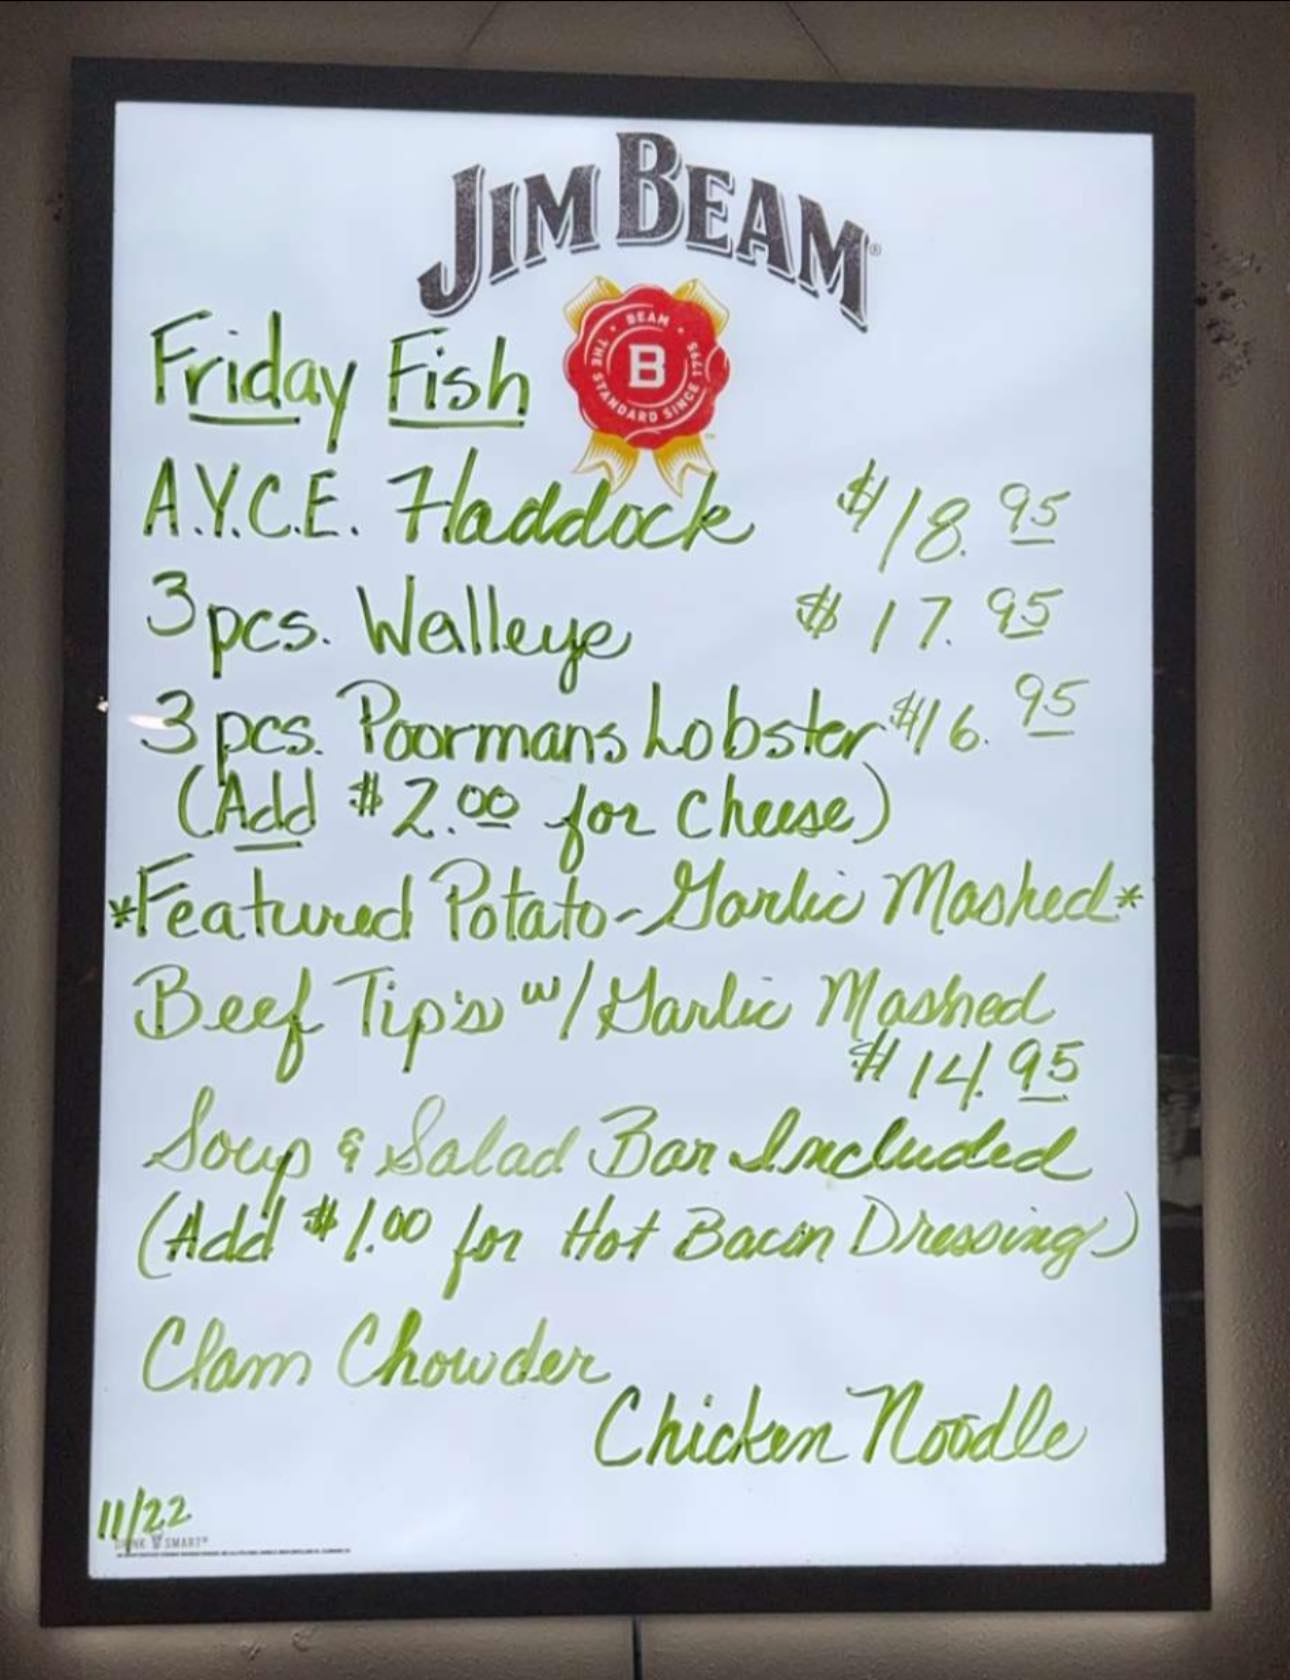 JIM BEAM®
BEAM
THE STANDARD SINCE 1795
B
Friday Fish
A.Y.C.E. Haddock $18.95
3 pcs. Walleye $17.95
3 pcs. Poormans Lobster $16.95
(Add $2.00 for cheese)
*Featured Potato-Garlic Mashed*
Beef Tip's w/ Garlic Mashed
$14.95
Soup & Salad Bar Included
(Add $1.00 for Hot Bacon Dressing)
Clam Chowder
Chicken Noodle
11/22
DRINK SMART®